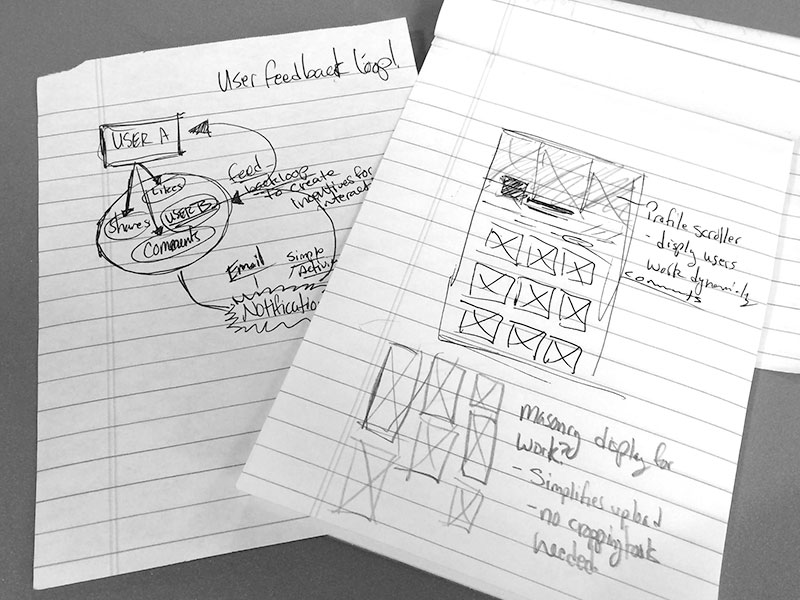 User feedback loop!
USER A
Feed
back loop
to create
incentives for
interact
Likes
USER B
Shares
Comments
Email
Simple
Activi
Notificatio
Profile scroller
- display users
work dynamicly
comments
masonry display for
work?
- Simplifies upload
- no cropping task
needed